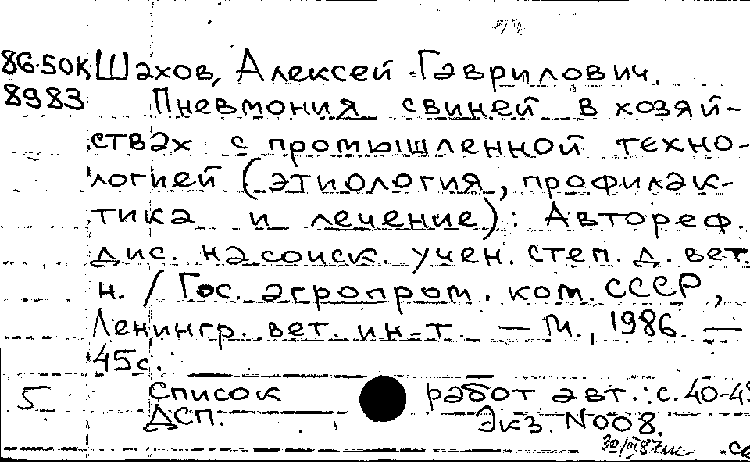 86-50К Шахов, Алексей Гаврилович.
8983 Пневмония свиней в хозяй-
ствах с промышленной техно-
логией (этиология, профилак-
тика и лечение): Автореф.
дис. на соиск. учен. степ. д. вет.
н. / Гос. агропром. ком. СССР,
Ленингр. вет. ин-т. — Л., 1986. —
45с.
5 Список работ авт.: с. 40-4
ДСП. Экз. N008.